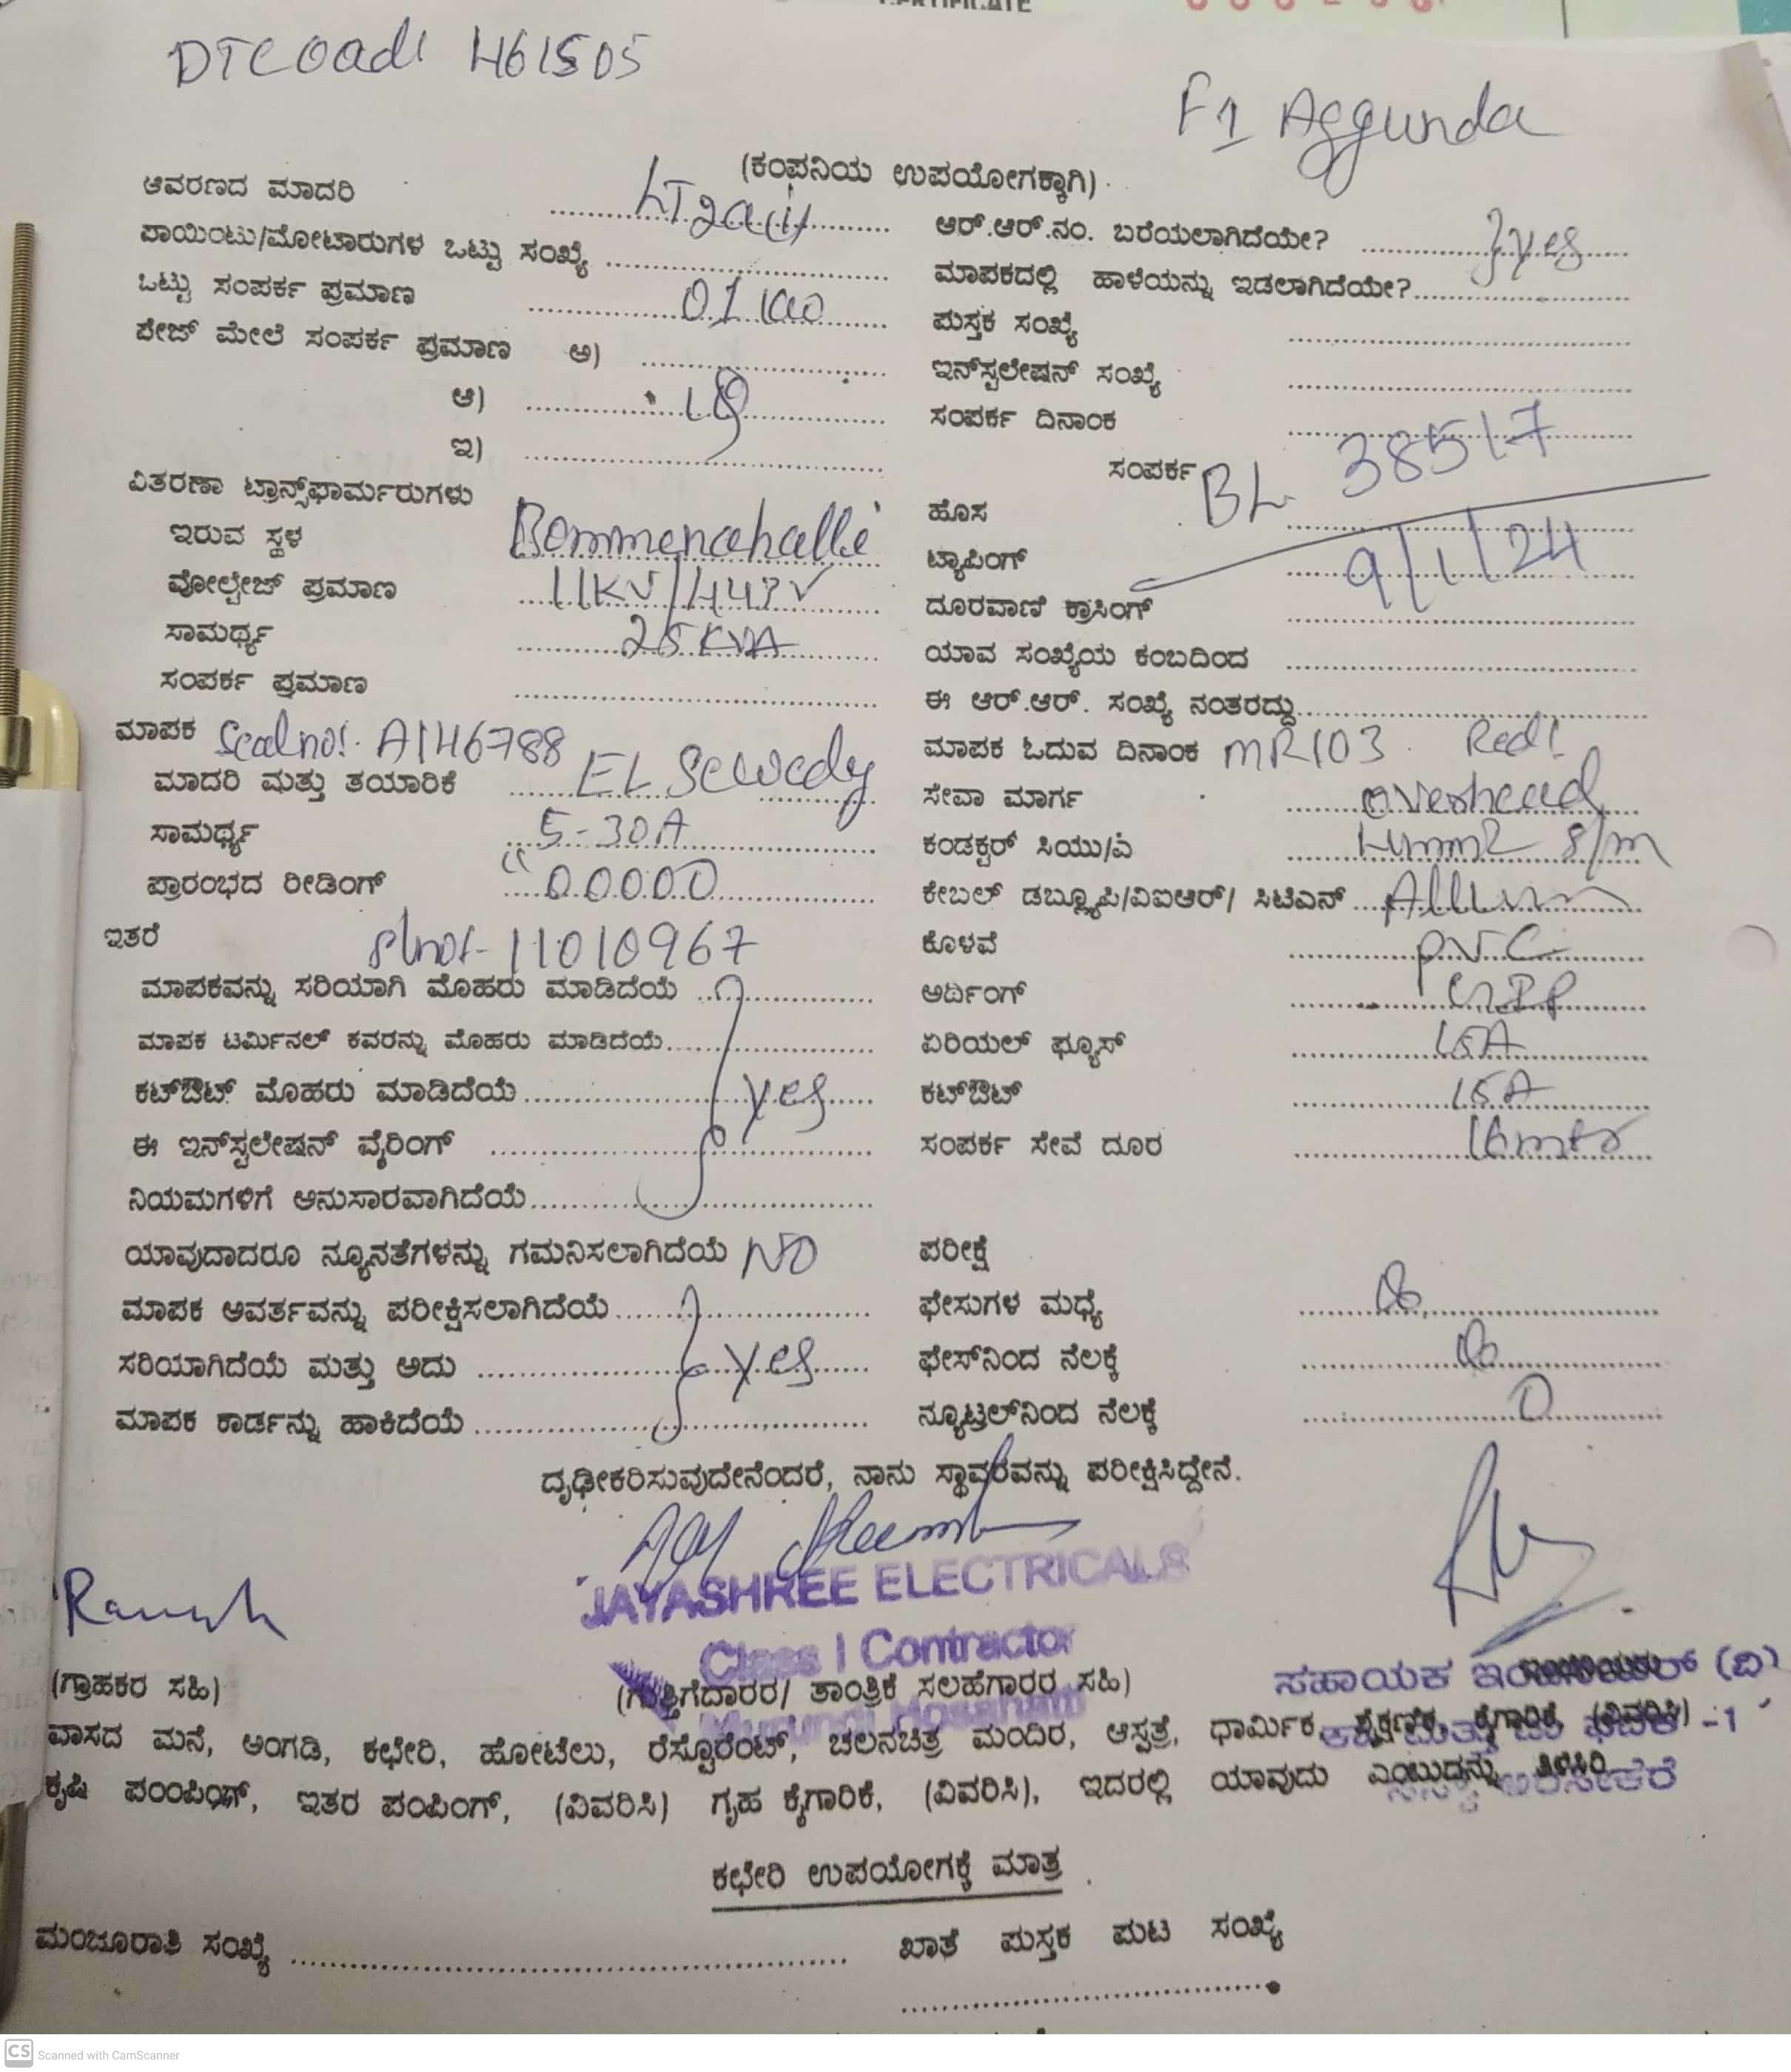 DTC oadl 461505
F1 Aggunda
(ಕಂಪನಿಯ ಉಪಯೋಗಕ್ಕಾಗಿ)
ಆವರಣದ ಮಾದರಿ LT2a(ii)
ಆರ್.ಆರ್.ನಂ. ಬರೆಯಲಾಗಿದೆಯೇ? yes
ಪಾಯಿಂಟು/ಮೋಟಾರುಗಳ ಒಟ್ಟು ಸಂಖ್ಯೆ
ಮಾಪಕದಲ್ಲಿ ಹಾಳೆಯನ್ನು ಇಡಲಾಗಿದೆಯೇ?
ಒಟ್ಟು ಸಂಪರ್ಕ ಪ್ರಮಾಣ 01
ಪುಸ್ತಕ ಸಂಖ್ಯೆ
ಪೇಜ್ ಮೇಲೆ ಸಂಪರ್ಕ ಪ್ರಮಾಣ ಅ)
ಇನ್‌ಸ್ಟಲೇಷನ್ ಸಂಖ್ಯೆ
ಆ)
ಸಂಪರ್ಕ ದಿನಾಂಕ
ಇ)
ಸಂಪರ್ಕ BL 38517
ವಿತರಣಾ ಟ್ರಾನ್ಸ್‌ಫಾರ್ಮರುಗಳು
ಹೊಸ
ಇರುವ ಸ್ಥಳ Bommenahalli
ಟ್ಯಾಪಿಂಗ್ 9/1/24
ವೋಲ್ಟೇಜ್ ಪ್ರಮಾಣ 11KV/443V
ದೂರವಾಣಿ ಕ್ರಾಸಿಂಗ್
ಸಾಮರ್ಥ್ಯ 25 KVA
ಯಾವ ಸಂಖ್ಯೆಯ ಕಂಬದಿಂದ
ಸಂಪರ್ಕ ಪ್ರಮಾಣ
ಈ ಆರ್.ಆರ್. ಸಂಖ್ಯೆ ನಂತರದ್ದು
ಮಾಪಕ Seal no:- A1146788
ಮಾಪಕ ಓದುವ ದಿನಾಂಕ MR103
ಮಾದರಿ ಮತ್ತು ತಯಾರಿಕೆ EL Sewedy
ಸೇವಾ ಮಾರ್ಗ overhead
ಸಾಮರ್ಥ್ಯ 5-30A
ಕಂಡಕ್ಟರ್ ಸಿಯು/ಎ 4mm2 S/m
ಪ್ರಾರಂಭದ ರೀಡಿಂಗ್ "00000
ಕೇಬಲ್ ಡಬ್ಲ್ಯೂಪಿ/ವಿಐಆರ್/ ಸಿಟಿಎನ್
ಇತರೆ slno:- 11010967
ಕೊಳವೆ PVC
ಮಾಪಕವನ್ನು ಸರಿಯಾಗಿ ಮೊಹರು ಮಾಡಿದೆಯೆ
ಅರ್ಥಿಂಗ್ GIP
ಮಾಪಕ ಟರ್ಮಿನಲ್ ಕವರನ್ನು ಮೊಹರು ಮಾಡಿದೆಯೆ
ಏರಿಯಲ್ ಫ್ಯೂಸ್ 15A
ಕಟ್‌ಔಟ್ ಮೊಹರು ಮಾಡಿದೆಯೆ yes
ಕಟ್‌ಔಟ್ 15A
ಈ ಇನ್‌ಸ್ಟಲೇಷನ್ ವೈರಿಂಗ್
ಸಂಪರ್ಕ ಸೇವೆ ದೂರ 16mtr
ನಿಯಮಗಳಿಗೆ ಅನುಸಾರವಾಗಿದೆಯೆ
ಯಾವುದಾದರೂ ನ್ಯೂನತೆಗಳನ್ನು ಗಮನಿಸಲಾಗಿದೆಯೆ NO
ಪರೀಕ್ಷೆ
ಮಾಪಕ ಆವರ್ತವನ್ನು ಪರೀಕ್ಷಿಸಲಾಗಿದೆಯೆ
ಫೇಸುಗಳ ಮಧ್ಯೆ
ಸರಿಯಾಗಿದೆಯೆ ಮತ್ತು ಅದು yes
ಫೇಸ್‌ನಿಂದ ನೆಲಕ್ಕೆ
ಮಾಪಕ ಕಾರ್ಡನ್ನು ಹಾಕಿದೆಯೆ
ನ್ಯೂಟ್ರಲ್‌ನಿಂದ ನೆಲಕ್ಕೆ 0
ದೃಢೀಕರಿಸುವುದೇನೆಂದರೆ, ನಾನು ಸ್ಥಾವರವನ್ನು ಪರೀಕ್ಷಿಸಿದ್ದೇನೆ.
JAYASHREE ELECTRICALS
Class I Contractor
(ಗ್ರಾಹಕರ ಸಹಿ)
(ಗುತ್ತಿಗೆದಾರರ/ ತಾಂತ್ರಿಕ ಸಲಹೆಗಾರರ ಸಹಿ)
ಸಹಾಯಕ (ವಿ)
ವಾಸದ ಮನೆ, ಅಂಗಡಿ, ಕಛೇರಿ, ಹೋಟೆಲು, ರೆಸ್ಟೊರೆಂಟ್, ಚಲನಚಿತ್ರ ಮಂದಿರ, ಆಸ್ಪತ್ರೆ, ಧಾರ್ಮಿಕ, ಶೈಕ್ಷಣಿಕ, ಕೈಗಾರಿಕೆ, (ವಿವರಿಸಿ)
ಕೃಷಿ ಪಂಂಪಿಂಗ್, ಇತರ ಪಂಪಿಂಗ್, (ವಿವರಿಸಿ) ಗೃಹ ಕೈಗಾರಿಕೆ, (ವಿವರಿಸಿ), ಇದರಲ್ಲಿ ಯಾವುದು ಎಂಬುದನ್ನು ತಿಳಿಸಿರಿ
ಕಛೇರಿ ಉಪಯೋಗಕ್ಕೆ ಮಾತ್ರ
ಮಂಜೂರಾತಿ ಸಂಖ್ಯೆ
ಖಾತೆ ಪುಸ್ತಕ ಪುಟ ಸಂಖ್ಯೆ
CS Scanned with CamScanner